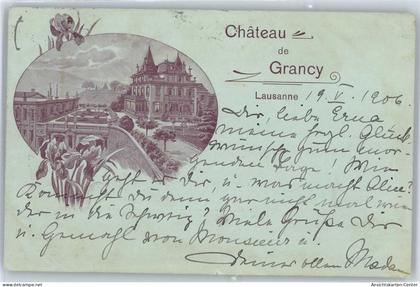 Château
de
Grancy
Lausanne 19. V. 1906
Dir, liebe Erna
meine herzl. Glück-
wünsche zum mor-
genden Tage. Wie
geht es Dir, u. was macht Aline?
Kommst du denn gar nicht mal wie-
der in die Schweiz? Viele Grüße Dir
u. Gemahl von Monsieur u.
Deiner alten Madam
© Ansichtskarten-Center